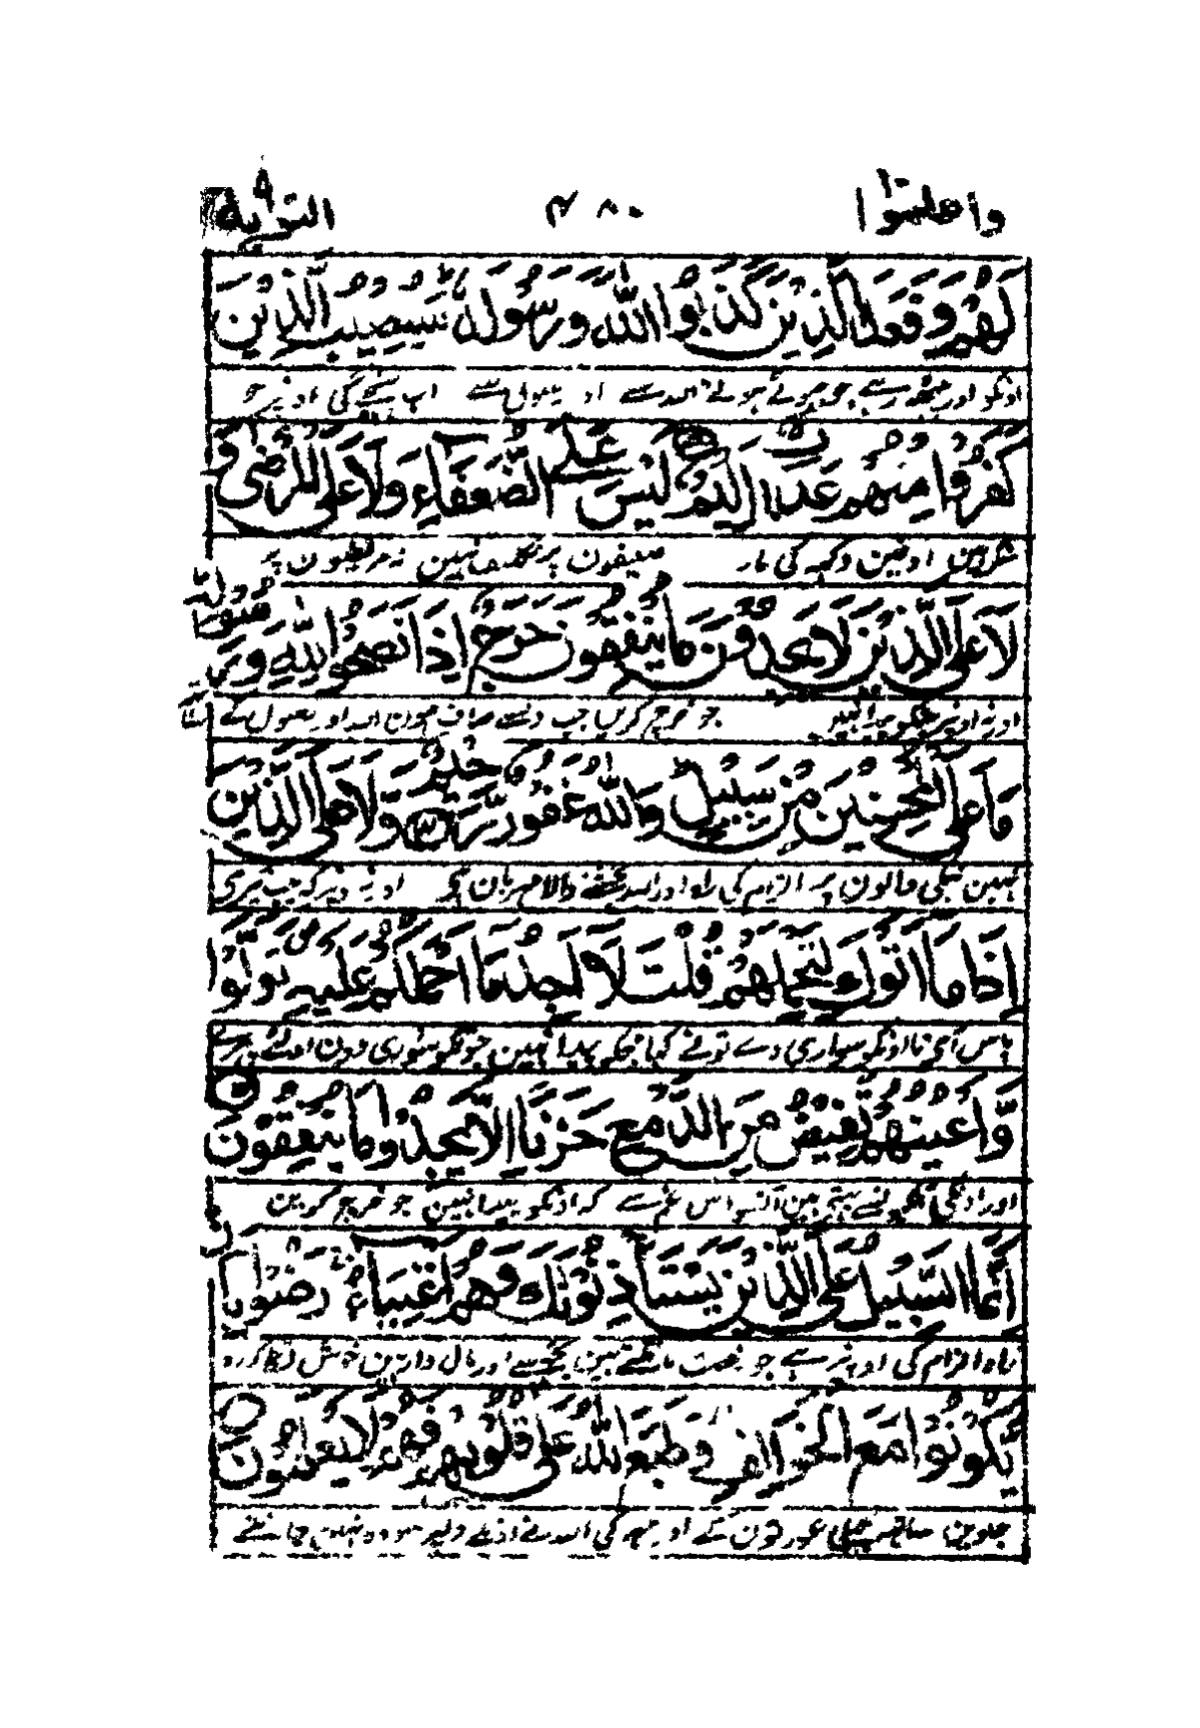 واعلموا ١٠ ٢٨٠ التوبة ٩
لَهُمْ وَقَعَدَ الَّذِيْنَ كَذَبُوا اللّٰهَ وَرَسُوْلَهٗ سَيُصِيْبُ الَّذِيْنَ
اونکو اور بیٹھ رہے جو جھوٹے ہوئے اللہ سے اور رسول سے اب پہنچے گی اونپر جو
كَفَرُوْا مِنْهُمْ عَذَابٌ اَلِيْمٌ لَيْسَ عَلَى الضُّعَفَاءِ وَلَا عَلَى الْمَرْضٰى وَ
منکر ہیں اونمین دکھ کی مار ضعیفون پر تکلیف نہین نہ مریضون پر
لَا عَلَى الَّذِيْنَ لَا يَجِدُوْنَ مَا يُنْفِقُوْنَ حَرَجٌ اِذَا نَصَحُوْا لِلّٰهِ وَرَسُوْلِهٖ
نہ اونپر جنکو پیدا نہین جو خرچ کرین جب دلسے صاف ہون اللہ اور رسول کے ساتھ
مَا عَلَى الْمُحْسِنِيْنَ مِنْ سَبِيْلٍ وَاللّٰهُ غَفُوْرٌ رَّحِيْمٌ وَّلَا عَلَى الَّذِيْنَ
نہین نیکی والون پر الزام کی راہ اور اللہ بخشنے والا مہربان ہے اور نہ اونپر کہ جب تیری
اِذَا مَا اَتَوْكَ لِتَحْمِلَهُمْ قُلْتَ لَا اَجِدُ مَا اَحْمِلُكُمْ عَلَيْهِ تَوَلَّوْا
پاس آئے تا اونکو سواری دے تونے کہا مجکو پیدا نہین جو تمکو سواری دون اولٹے پھرے
وَّاَعْيُنُهُمْ تَفِيْضُ مِنَ الدَّمْعِ حَزَنًا اَلَّا يَجِدُوْا مَا يُنْفِقُوْنَ
اور اونکی آنکھونسے بہتے ہین آنسو اس غم سے کہ اونکو پیدا نہین جو خرچ کرین
اِنَّمَا السَّبِيْلُ عَلَى الَّذِيْنَ يَسْتَاْذِنُوْنَكَ وَهُمْ اَغْنِيَاءُ رَضُوْا بِاَنْ
راہ الزام کی اونپر ہے جو رخصت مانگتے ہین تجھسے اور مال دار ہین خوش لگا کر رہ
يَّكُوْنُوْا مَعَ الْخَوَالِفِ وَطَبَعَ اللّٰهُ عَلٰى قُلُوْبِهِمْ فَهُمْ لَا يَعْلَمُوْنَ
جاوین ساتھ پچھلی عورتون کے اور مہر کی اللہ نے اونکے دلپر سو وہ نہین جانتے